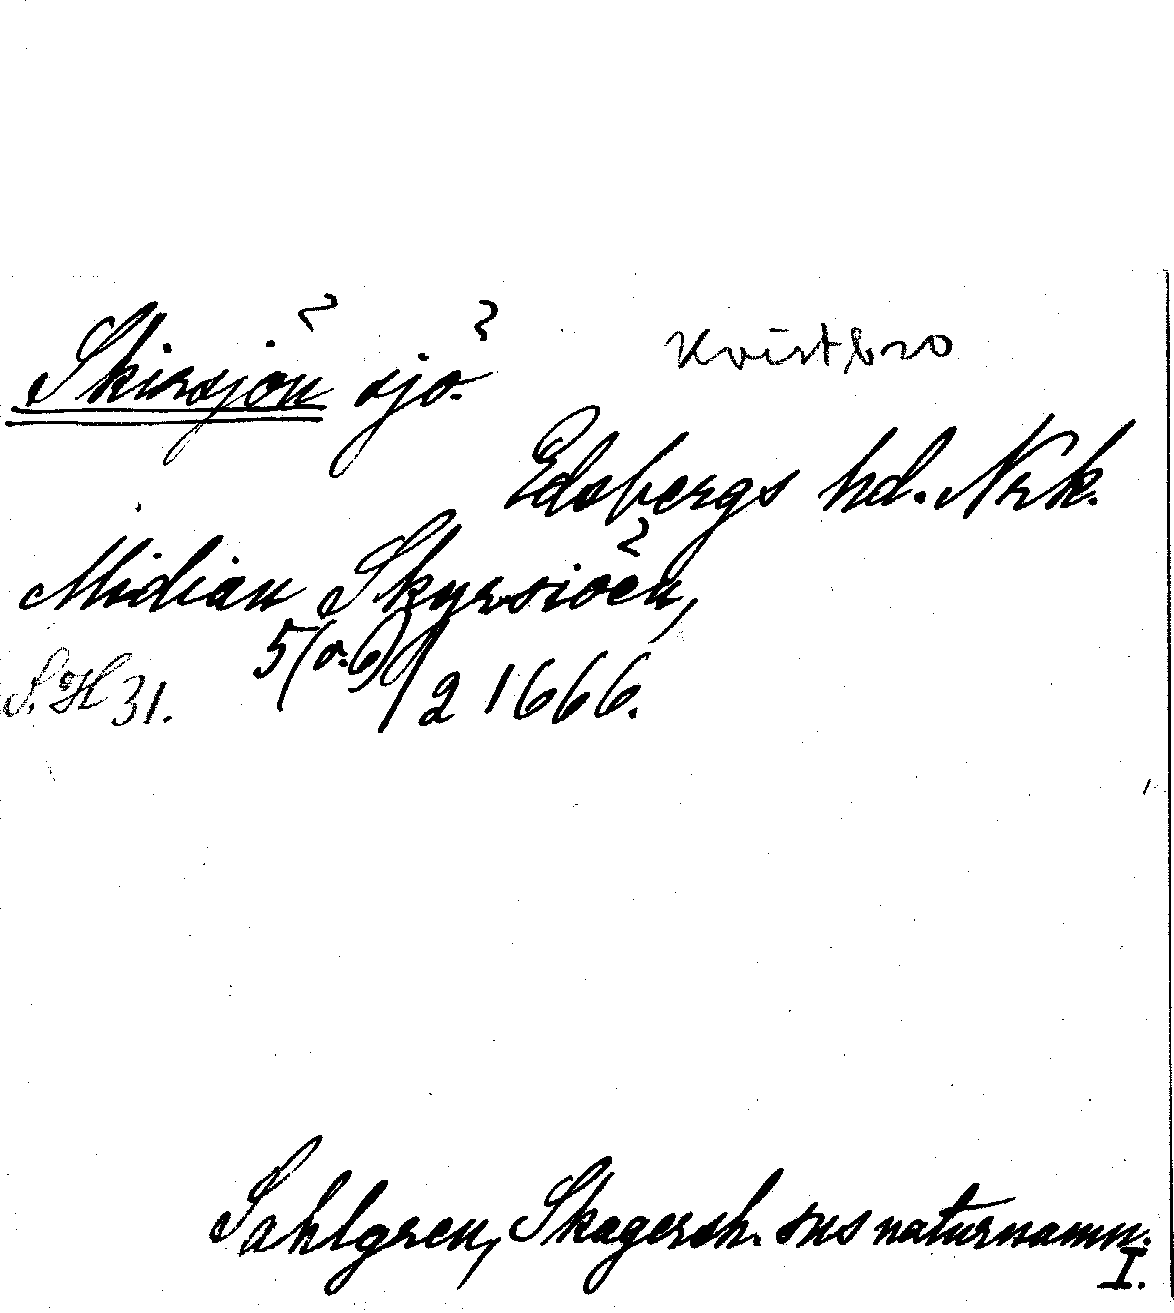 Skirsjön sjö. Kvistbro
Edsbergs hd. Nrk.
Midian Skyrsiöen,
S.H 31. 5(o.6)/2 1666.
Sahlgren, Skagersh. sns naturnamn.
I.